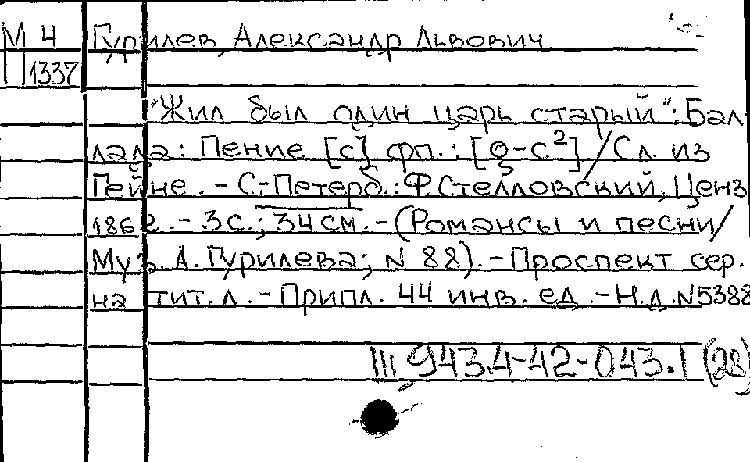 М 4 Гурилев, Александр Львович
П 1337
"Жил был один царь старый": Бал-
лада: Пение [с] фп.: [g-c²] / Сл. из
Гейне. - С.-Петерб.: Ф. Стелловский, Ценз
1862. - 3 с.; 34 см. - (Романсы и песни /
Муз. А. Гурилева; N 88). - Проспект сер.
на тит. л. - Припл. 44 инв. ед. - Н.д. N5388
III 943.4-42-043.1 (28)